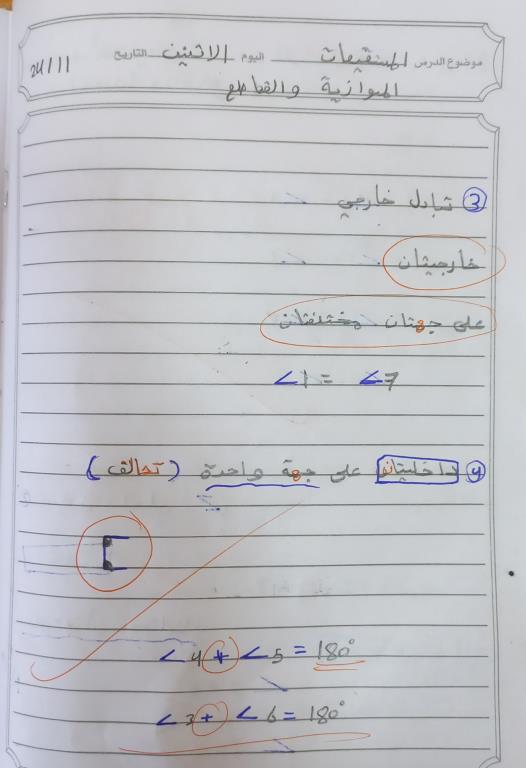 موضوع الدرس المستقيمات اليوم الاثنين التاريخ 24/11
المتوازية والقاطع
③ تبادل خارجي
خارجيتان
على جهتان مختلفتان
∠1 = ∠7
④ داخليتان على جهة واحدة (تحالف)
∠4 + ∠5 = 180°
∠3 + ∠6 = 180°